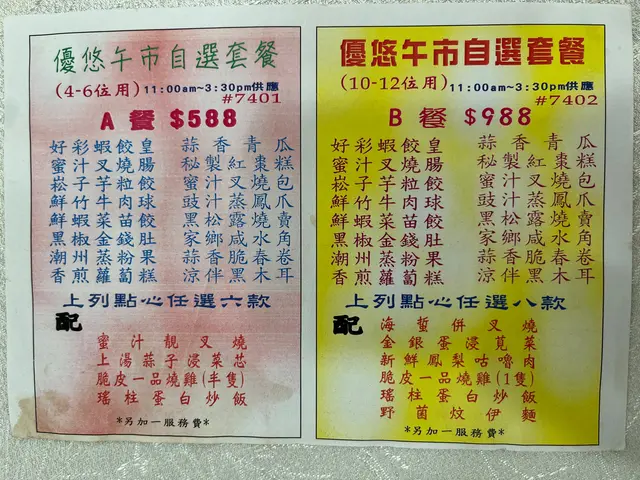 優悠午市自選套餐
(4-6位用) 11:00am~3:30pm供應
#7401
A餐 $588
好彩蝦餃皇 蒜香青瓜
蜜汁叉燒腸 秘製紅棗糕
崧子芋粒餃 蜜汁叉燒包
鮮竹牛肉球 豉汁蒸鳳爪
鮮蝦菜苗餃 黑松露燒賣
黑椒金錢肚 家鄉咸水角
潮州蒸粉果 蒜香脆春卷
香煎蘿蔔糕 涼伴黑木耳
上列點心任選六款
配
蜜汁靚叉燒
上湯蒜子浸菜芯
脆皮一品燒雞(半隻)
瑤柱蛋白炒飯
*另加一服務費*
優悠午市自選套餐
(10-12位用) 11:00am~3:30pm供應
#7402
B餐 $988
好彩蝦餃皇 蒜香青瓜
蜜汁叉燒腸 秘製紅棗糕
崧子芋粒餃 蜜汁叉燒包
鮮竹牛肉球 豉汁蒸鳳爪
鮮蝦菜苗餃 黑松露燒賣
黑椒金錢肚 家鄉咸水角
潮州蒸粉果 蒜香脆春卷
香煎蘿蔔糕 涼伴黑木耳
上列點心任選八款
配
海蜇併叉燒
金銀蛋浸莧菜
新鮮鳳梨咕嚕肉
脆皮一品燒雞(1隻)
瑤柱蛋白炒飯
野菌炆伊麵
*另加一服務費*